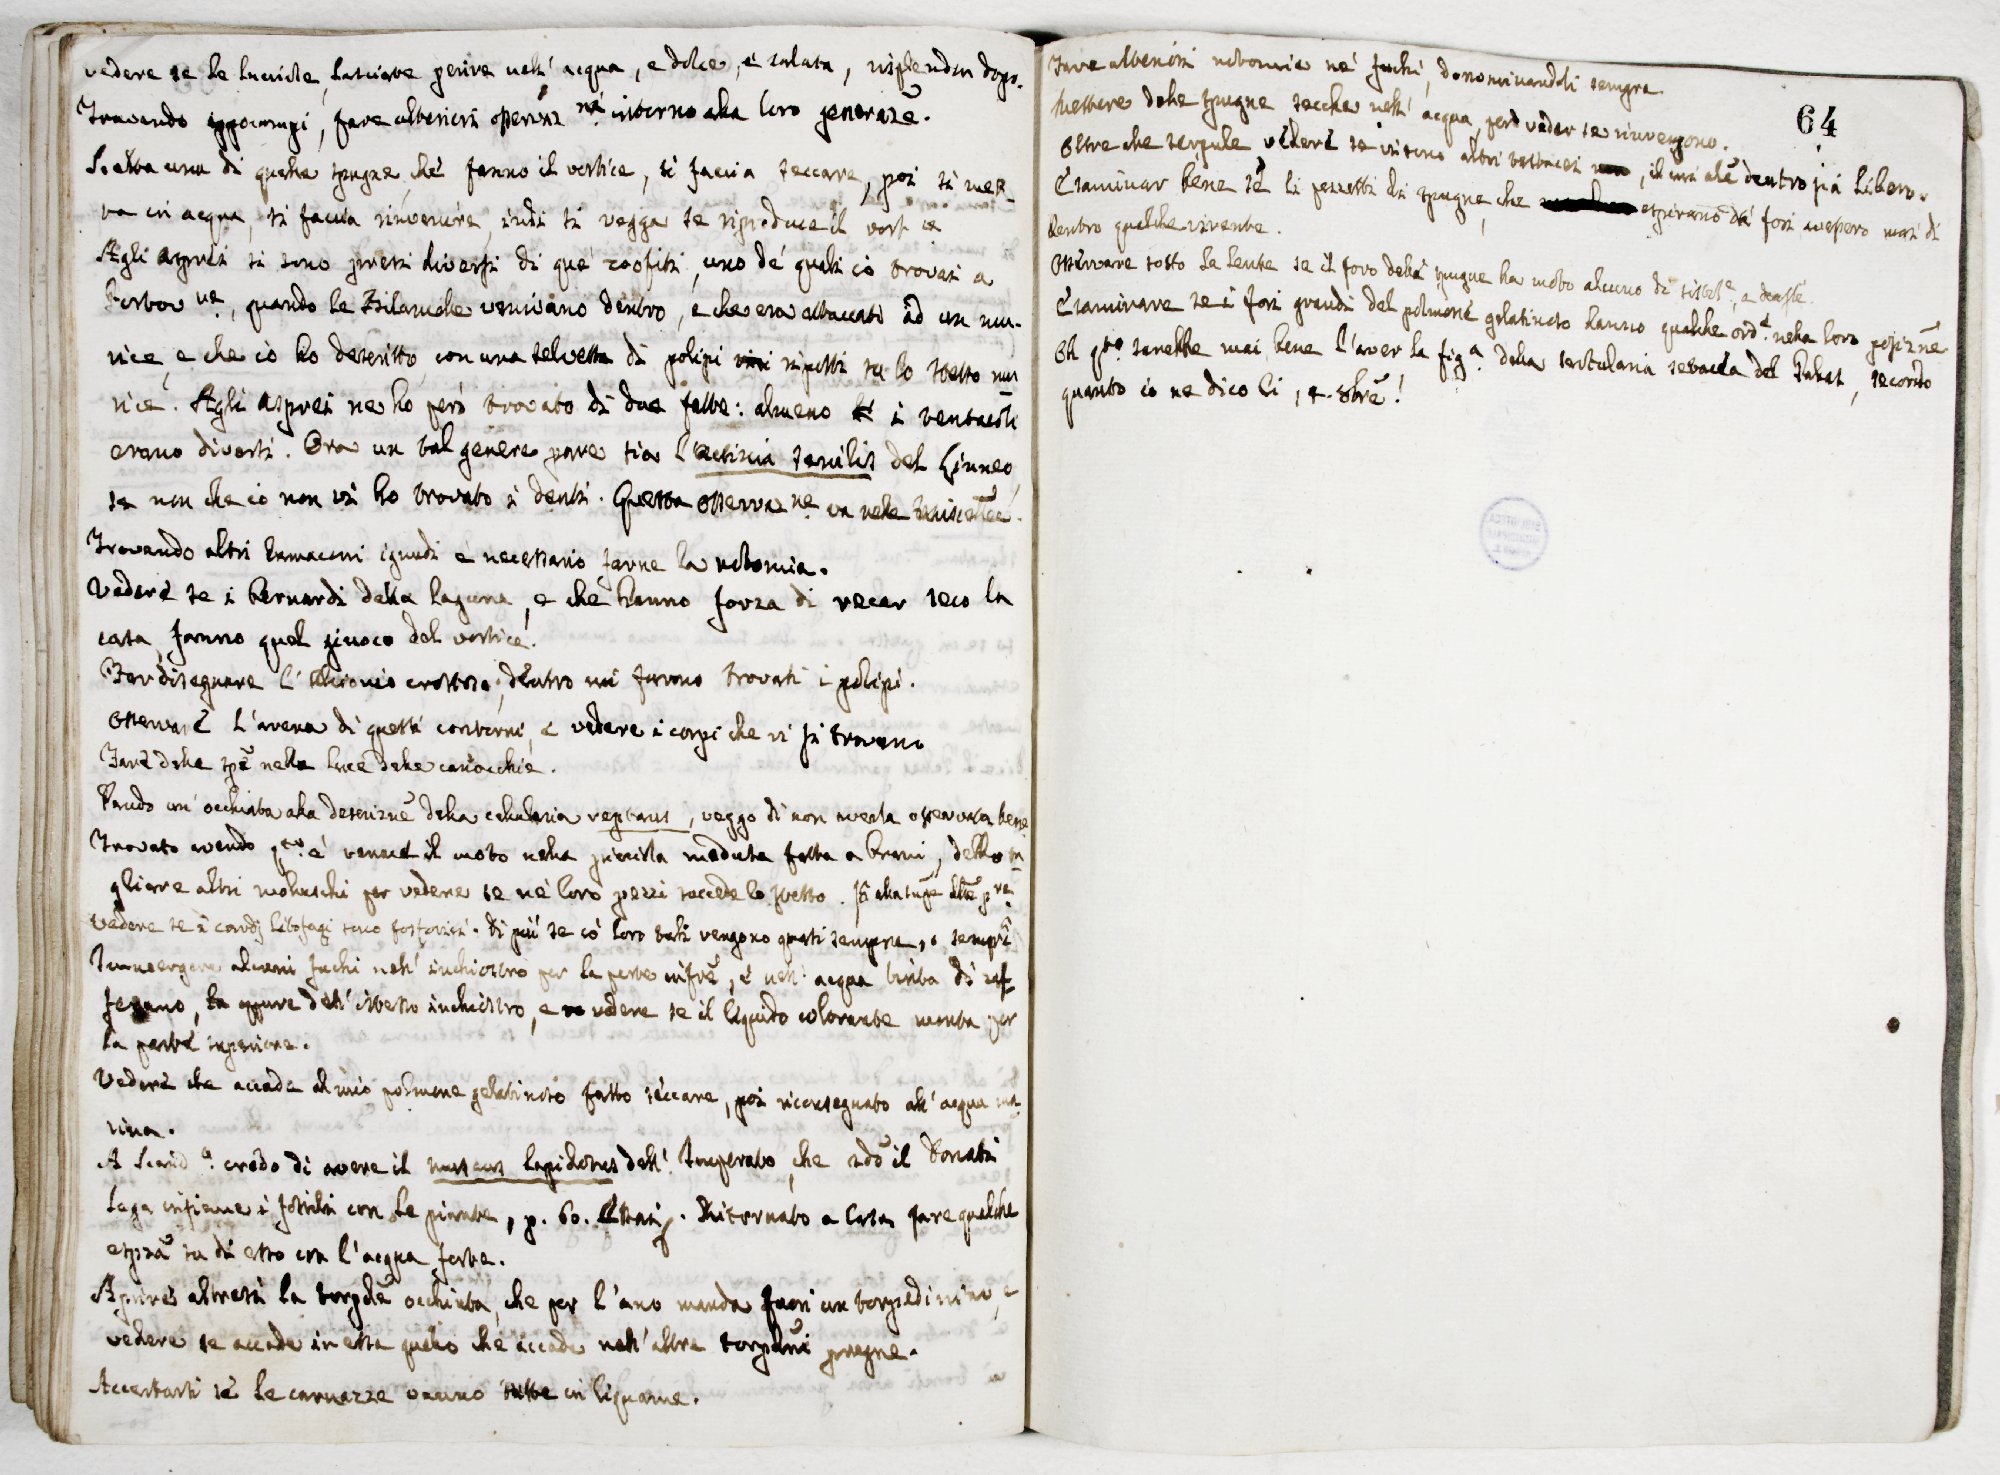 vedere se le lucciole, lasciate perire nell' acqua, e dolce, e salata, risplendon dopo.
Trovando ippocampi, fare altresì osservaz.ni intorno alla loro generaze.
Scelta una di quelle spugne che fanno il vortice, si faccia seccare, poi si met
ta in acqua, si faccia rinvenire, indi si vegga se riproduce il vortice
Agli aspresi si sono presi diversi di que' zoofiti, uno de' quali io trovai a
quando le venivano dentro, e che era attaccato ad un mu-
rice, e che io ho descritto, con una selvetta di polipi ripetti su lo stesso mu
rice. Agli aspresi ne ho però trovato di due fatte: almeno i tentacoli
erano diversi. Ora un tal genere pare sia l'actinia senilis del Linneo,
se non che io non vi ho trovato i denti. Questa osservaz.ne va nelle
Trovando altri lumaconi ignudi è necessario farne la notomia.
Vedere se i bernardi della laguna, e che hanno forza di recar seco la
casa, fanno quel giuoco del vortice.
Far disegnare l' Alcionio crostoso, dentro cui furono trovati i polipi.
Osservare l'arena di questi contorni, e vedere i corpi che vi si trovano
Fare delle spe nella luce delle canocchie.
Dando un' occhiata alla descrizne della cellularia reptans, veggo di non averla osservata bene
Trovato avendo q.to è tenace il moto nella piccola medusa fatta a brani, debbo
gliare altri molluschi per vedere se ne' loro pezzi succede lo stesso.
Vedere se i litofagi sono fosforici. Di più se co' loro tali vengono quasi sempre, o sempre
Immergere alcuni fuchi nell' inchiostro per la parte infre, e nell' acqua tinta di zaf
ferano, oppure dell' istesso inchiostro, e vedere se il liquido colorante monta per
la parte superiore.
Vedere che accade al mio polmone gelatinoso fatto seccare, poi riconsegnato all' acqua ma
rina.
A credo di avere il muscus lapideus dell' Imperato, che il Donati
lega insieme i fossili con le piante, p. 60. Ritornato a Casa fare qualche
espza su di esso con l'acqua forte.
Aprire altresì la torpedine occhiuta, che per l'ano manda fuori un torpedinino, e
vedere se accade in essa quello che accade nell' altre torpedini pregne.
Accertarsi se le carnazze vanno tutte in liquame.
Fare altresì notomia ne' fuchi, denominandoli sempre.
Mettere delle spugne secche nell' acqua, per veder se rinvengono.
Oltre che serpule vedere se vi sono altri testacei, il cui ale dentro sia libero.
Esaminar bene se li pezzetti di spugne, che espirano da' fori avessero mai di
dentro qualche vivente.
Osservare sotto la lente se il foro delle spugne ha moto alcuno di sistole, e diastle.
Esaminare se i fori grandi del polmone gelatinoso hanno qualche ord.e nella loro posizne
Oh q.to sarebbe mai bene l'aver la fig.a della sertularia setacea del Pallas, secondo
quanto io ne dico li, e
64